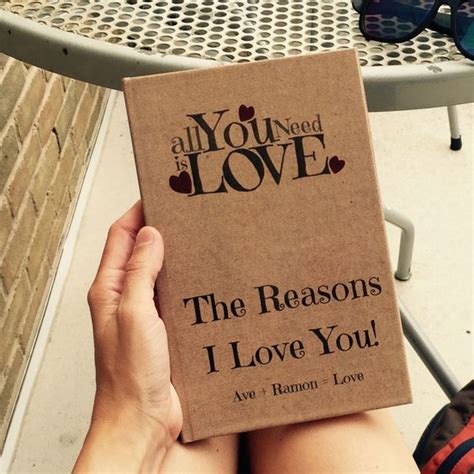 all You Need
is LOVE
The Reasons
I Love You!
Ave + Ramon = Love